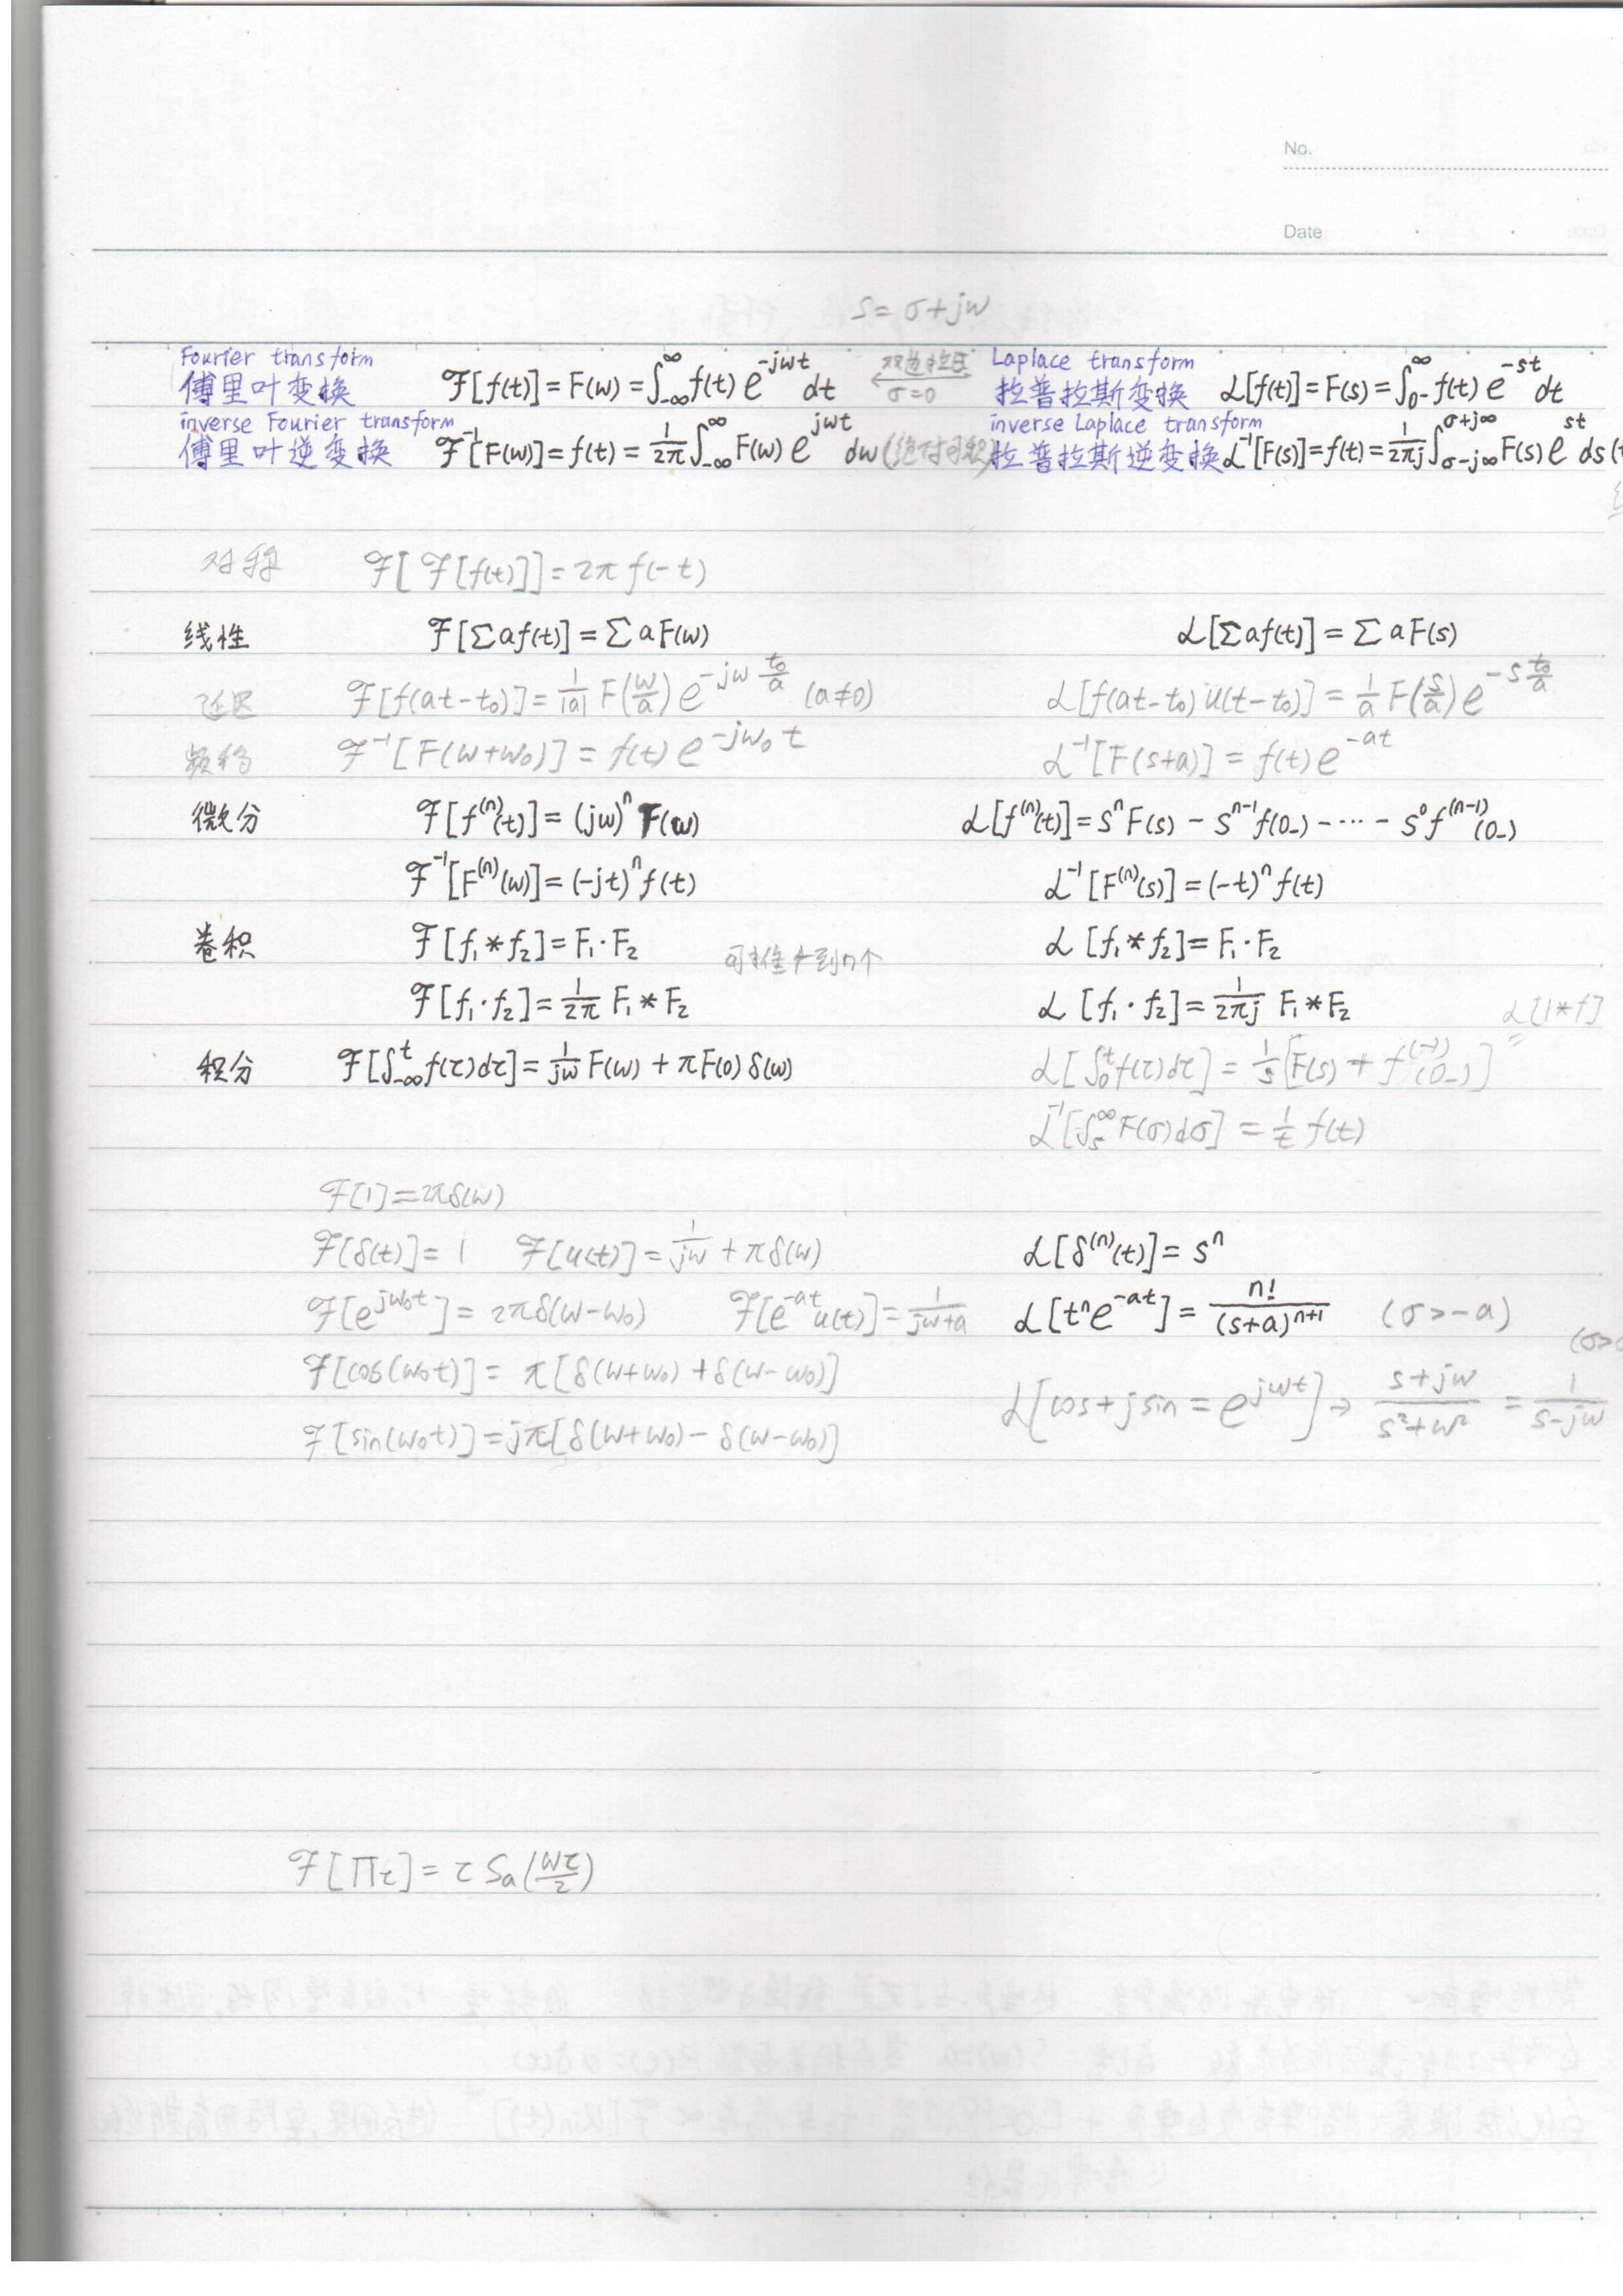 No.
Date
s = σ+jw
Fourier transform
傅里叶变换 ℱ[f(t)] = F(w) = ∫_{-∞}^{∞} f(t) e^{-jwt} dt 双边拉氏 σ=0 Laplace transform
拉普拉斯变换 ℒ[f(t)] = F(s) = ∫_{0-}^{∞} f(t) e^{-st} dt
inverse Fourier transform
傅里叶逆变换 ℱ^{-1}[F(w)] = f(t) = \frac{1}{2π} ∫_{-∞}^{∞} F(w) e^{jwt} dw (绝对可积) inverse Laplace transform
拉普拉斯逆变换 ℒ^{-1}[F(s)] = f(t) = \frac{1}{2πj} ∫_{σ-j∞}^{σ+j∞} F(s) e^{st} ds
对称 ℱ[ℱ[f(t)]] = 2π f(-t)
线性 ℱ[∑af(t)] = ∑aF(w) ℒ[∑af(t)] = ∑aF(s)
延迟 ℱ[f(at-t_0)] = \frac{1}{|a|} F(\frac{w}{a}) e^{-jw\frac{t_0}{a}} (a≠0) ℒ[f(at-t_0)u(t-t_0)] = \frac{1}{a} F(\frac{s}{a}) e^{-s\frac{t_0}{a}}
频移 ℱ^{-1}[F(w+w_0)] = f(t) e^{-jw_0 t} ℒ^{-1}[F(s+a)] = f(t) e^{-at}
微分 ℱ[f^{(n)}(t)] = (jw)^n F(w) ℒ[f^{(n)}(t)] = S^n F(s) - S^{n-1} f(0_-) - ··· - S^0 f^{(n-1)}(0_-)
ℱ^{-1}[F^{(n)}(w)] = (-jt)^n f(t) ℒ^{-1}[F^{(n)}(s)] = (-t)^n f(t)
卷积 ℱ[f_1 * f_2] = F_1·F_2 可推广到n个 ℒ[f_1 * f_2] = F_1·F_2
ℱ[f_1·f_2] = \frac{1}{2π} F_1 * F_2 ℒ[f_1·f_2] = \frac{1}{2πj} F_1 * F_2 ℒ[1*f]
积分 ℱ[∫_{-∞}^{t} f(τ)dτ] = \frac{1}{jw} F(w) + πF(0)δ(w) ℒ[∫_0^t f(τ)dτ] = \frac{1}{s}[F(s) + f^{(-1)}(0_-)] =
ℒ^{-1}[∫_s^∞ F(σ)dσ] = \frac{1}{t} f(t)
ℱ[1] = 2πδ(w)
ℱ[δ(t)] = 1 ℱ[u(t)] = \frac{1}{jw} + πδ(w) ℒ[δ^{(n)}(t)] = s^n
ℱ[e^{jw_0t}] = 2πδ(w-w_0) ℱ[e^{-at}u(t)] = \frac{1}{jw+a} ℒ[t^n e^{-at}] = \frac{n!}{(s+a)^{n+1}} (σ>-a)
ℱ[cos(w_0t)] = π[δ(w+w_0)+δ(w-w_0)] ℒ[cos+jsin = e^{jwt}] → \frac{s+jw}{s^2+w^2} = \frac{1}{s-jw}
ℱ[sin(w_0t)] = jπ[δ(w+w_0)-δ(w-w_0)]
ℱ[Πτ] = τ Sa(\frac{wτ}{2})